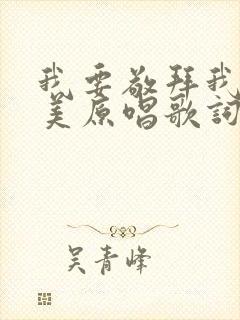 我要敬拜我
美原唱歌詞
吴青峰